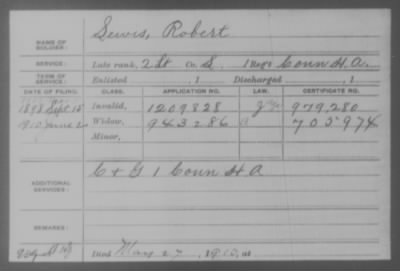 NAME OF SOLDIER: Lewis, Robert
SERVICE: Late rank, 2d Lt Co. L, 1 Reg't Conn H. A.
TERM OF SERVICE: Enlisted , 1 Discharged , 1
DATE OF FILING. CLASS. APPLICATION NO. LAW. CERTIFICATE NO.
1898 Sept 15 Invalid, 1209828 979,280
1910 June 2 Widow, 943286 A 703974
Minor,
ADDITIONAL SERVICES: C + G 1 Conn H A
REMARKS:
Died May 27, 1910, at